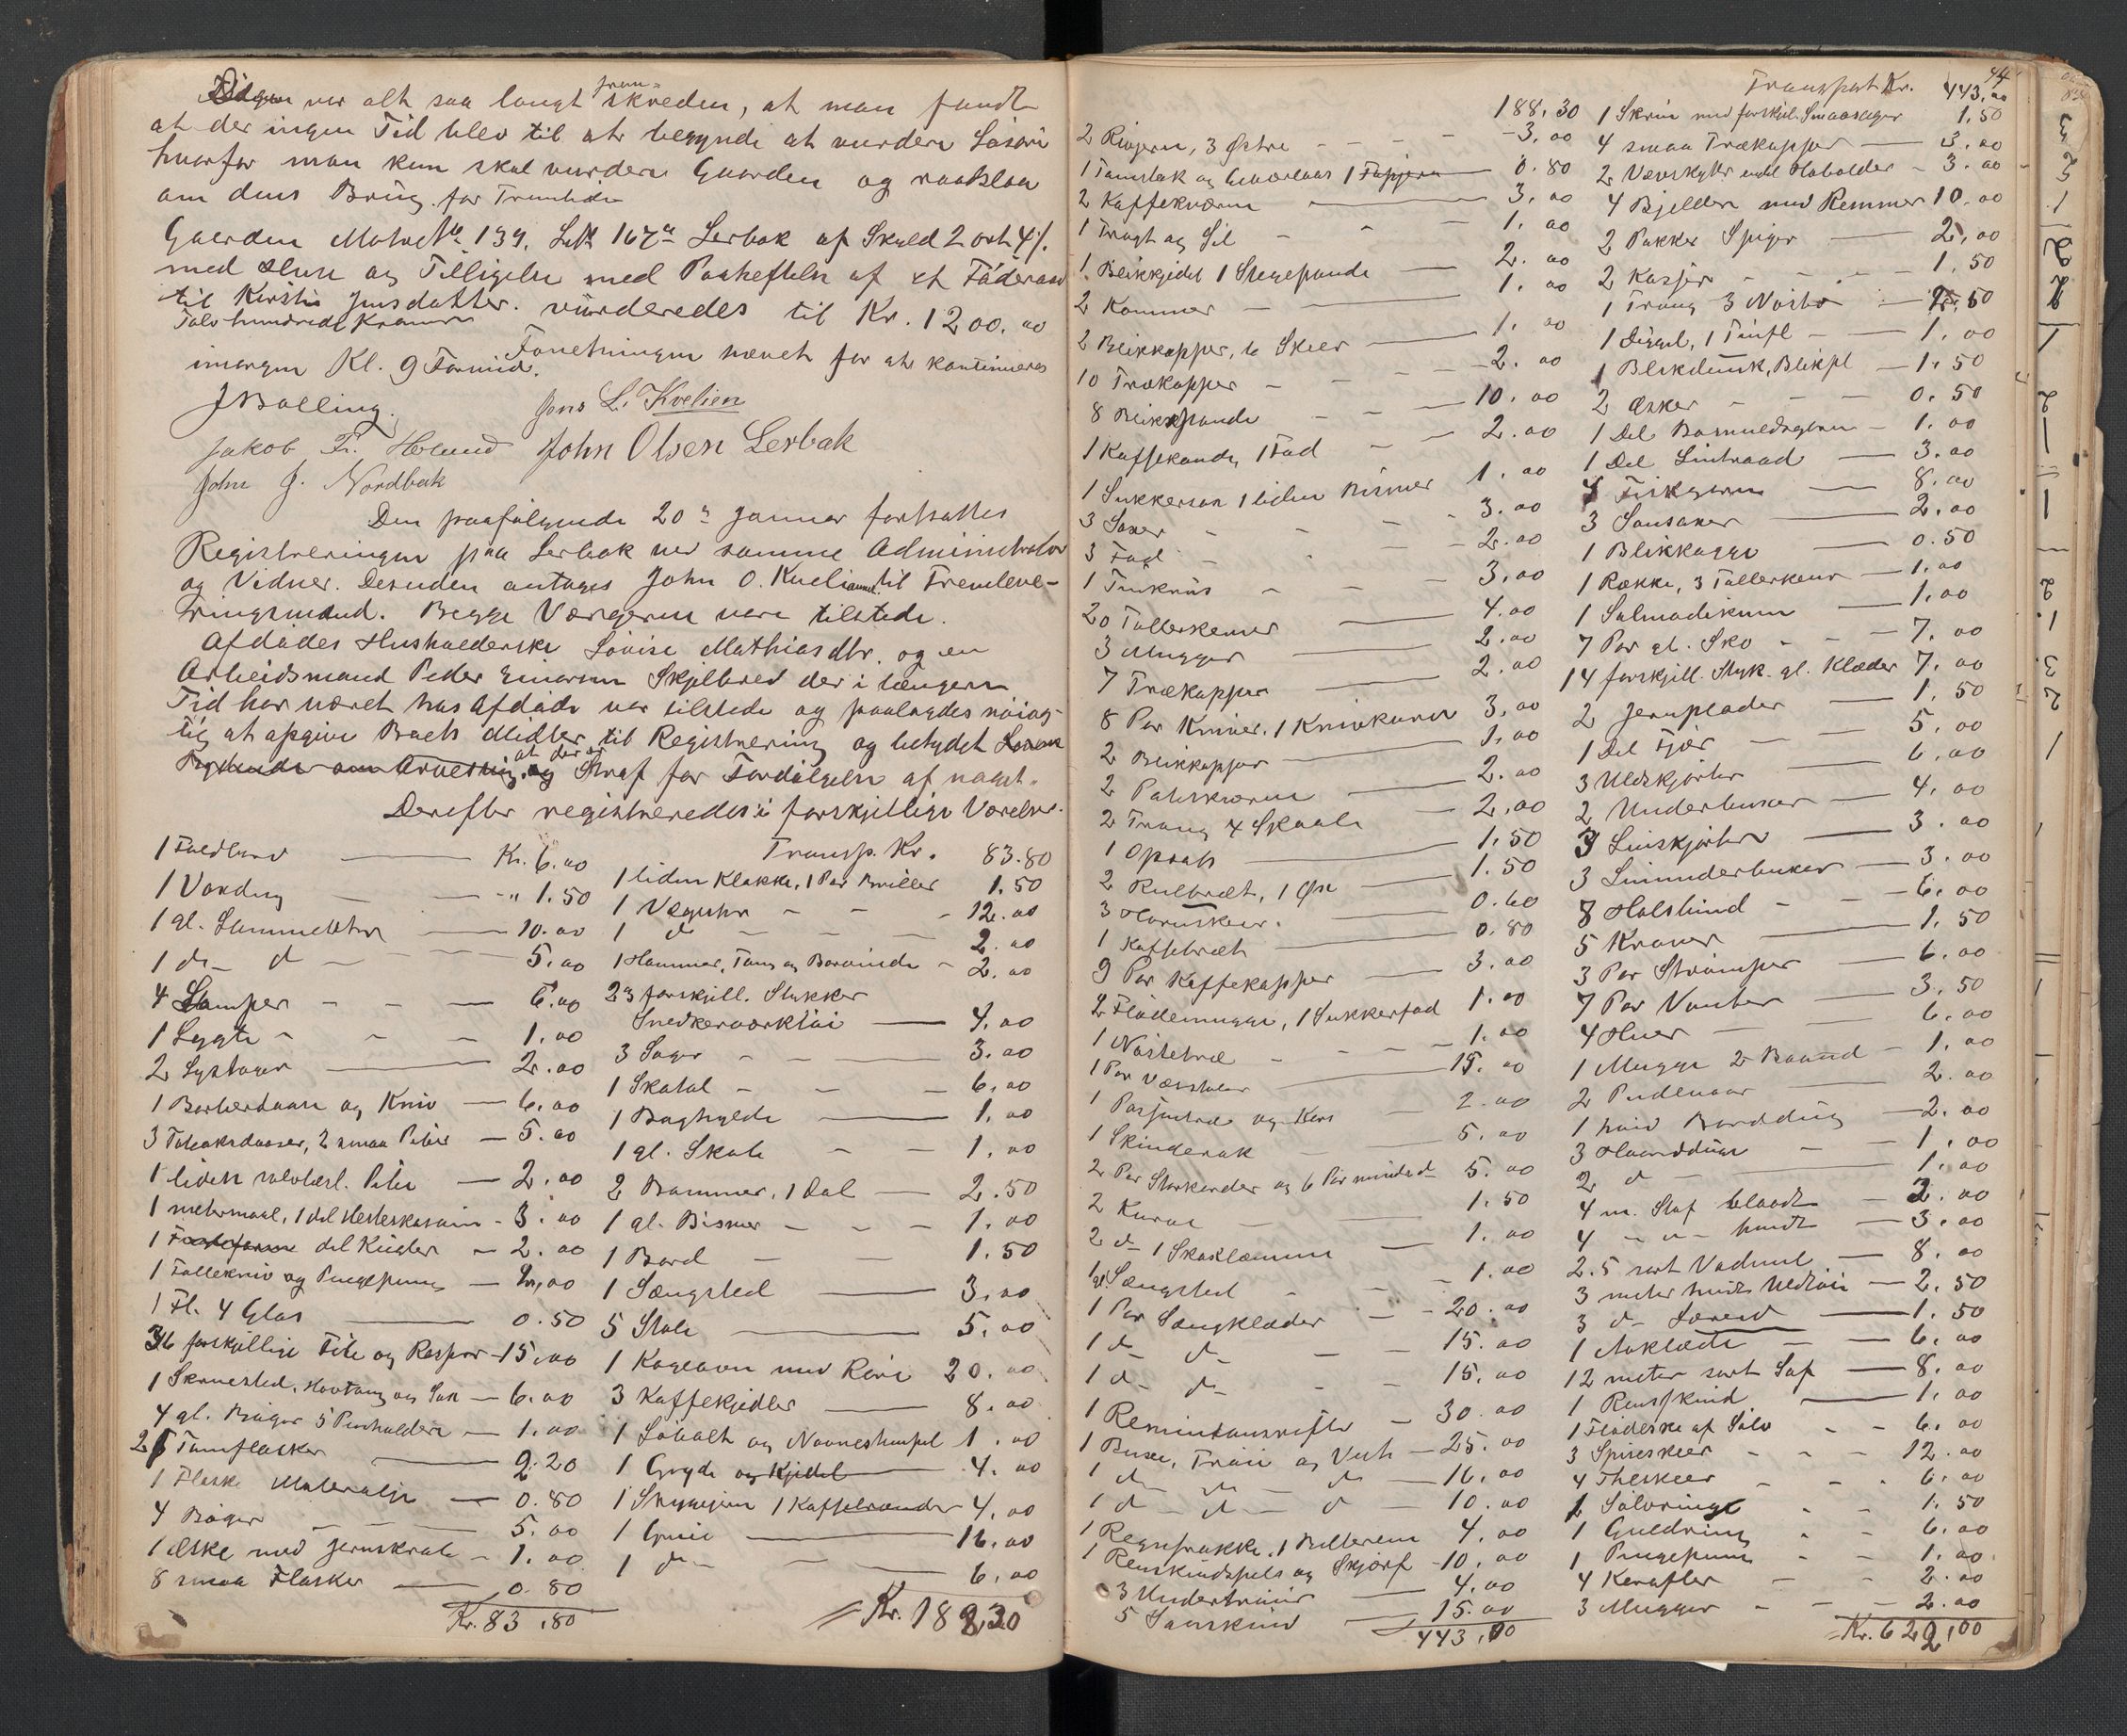 Dagen var alt saa langt frem-
skreden, at man fandt
at der ingen Tid blev til at begynde at vurdere Løsøre
hvorfor man kun skal vurdere Gaarden og raadslaa
om dens Brug for Fremtiden
Gaarden Matr. No 139, L. No 167a Lerbak af Skyld 2 ort 4 ß.
med Huse og Tilligelse med Paaheftelse af et Föderaad
til Kirstie Jensdatter. vurderedes til Kr. 1200.00
Tolvhundrede Kroner
Foretningen hævet for at kontinueres
imorgen Kl. 9 Formid.
J Bolling. Jens L. Kvelien
Jakob Fr. Holund John Olsen Lerbak
John J. Nordbak
Den paafølgende 20de Januar fortsattes
Registreringen paa Lerbak ved samme Administrator
og Vidner. Desuden antages John O. Kveli til Fremleve-
ringsmand. Begge Værgerne vare tilstede.
Afdødes Husholderske Lovise Mathiasdtr. og en
Arbeidsmand Peder Einarsen Skjelbred der i længere
Tid har været hos Afdøde var tilstede og paalagdes nøiag-
tig at opgive Boets Midler til Registrering og betydet
at der er Straf for Fordølgelse af noget.
Derefter registreredes i forskjellige Værelser.
1 Foldbord Kr. 6.00
1 Voxdug " 1.50
1 gl. Lommeuhr 10.00
1 do d 5.00
4 Lamper 6.00
1 Lygte 1.00
2 Lystager 2.00
1 Barberdaase og Kniv 6.00
3 Tobaksdaaser, 2 smaa Piber 5.00
1 liden sølvbesl. Pibe 2.00
1 metermaal, 1 del Hesteskosøm 3.00
1 del Kugler 2.00
1 Follekniv og Pengepung 2.00
1 Fl. 4 Glas 0.50
36 forskjellige File og Rasper 15.00
1 Skruested, Hovtang og Sax 6.00
4 gl. Bøger 5 Penholdere 1.00
2 Tomflasker 2.20
1 Flaske Materialje 0.80
4 Bøger 5.00
1 Æske med Jernskrab 1.00
8 smaa Flasker 0.80
Kr. 83.80
Transp. Kr. 83.80
1 liden Klokke, 1 Par Briller 1.50
1 Væguhr 12.00
1 d 2.00
1 Hammer, Tang og Borvinde 2.00
23 forskjell. Stykker
Snedkerværktøi 4.00
3 Sager 3.00
1 Skatol 6.00
1 Boghylde 1.00
1 gl. Skab 1.00
2 Bommer, 1 Dal 2.50
1 gl. Bismer 1.00
1 Bord 1.50
1 Sængsted 3.00
5 Stole 5.00
1 Kogeovn med Rör 20.00
3 Kaffekjedler 8.00
1 Løbolt og Navnestempel 1.00
1 Gryde og Kjedel 4.00
1 Strygejern 1 Kaffebrænder 4.00
1 16.00
1 do 6.00
Kr. 188,30
188,30
2 3 Østre 3.00
0.80
2 Kaffekværne 3.00
1 Tragt og Sil 1.00
1 Blikkjedel 1 Stegepande 2.00
2 Kammer 1.00
2 Blikkopper, 6 Skeer 1.00
10 Trækopper 2.00
8 Blikspande 10.00
1 Kaffekande, 1 Fad 2.00
1 Sukkersax 1 liden Bismer 1.00
3 Saxer 3.00
3 Fad 2.00
1 3.00
20 Tallerkener 4.00
3 Mugger 2.00
7 Trækopper 2.00
8 Par Knive, 1 Knivkurv 3.00
2 Blikkopper 1.00
2 2.00
2 Traug 4 Skaale 2.00
1 Opsats 1.50
2 1 Øse 1.50
3 Hornskeer. 0.60
1 Kaffebræt 0.80
9 Par Kaffekopper 3.00
2 Flødemugge, 1 Sukkerfad 1.00
1 Nøstetræ 1.00
1 Par Vævstole 15.00
1 og Kors 2.00
1 Skindsæk 5.00
2 Par Storkarder og 6 Par mindre do 5.00
2 Kurve 1.50
2 do 1 Skoklemme 1.00
1 gl. Sængsted 1.00
1 Par Sængklæder 20.00
1 d d 15.00
1 d d 15.00
1 Remintonsrifle 30.00
1 Buxe, Trøie og Vest 25.00
1 d d d 16.00
1 d d d 10.00
1 Regnfrakke, 1 Belterem 4.00
1 Renskindspels og Skjørf 10.00
3 Undertrøier 4.00
5 Saueskind 15.00
443,00
44
Transport Kr. 443.00
1 Skrin med forskjel. Smaasager 1.50
4 smaa Trækopper 3.00
2 Vævskytter endel Hovolder 3.00
4 Bjelder med Remmer 10.00
2 Pakker Spiger 2.00
2 Kasjer 1.50
1 Traug 3 Nøster 2.50
1 Diggel, 1 Tinfl 1.00
1 Blekdunk, Blikfl 1.50
2 Æsker 0.50
1 Del Bomuldsgarn 1.00
1 Del Lintraad 3.00
4 Fiskgarn 8.00
3 Sausaxer 2.00
1 Blikkagge 0.50
1 Række, 3 Tallerkener 1.00
1 Salmodikum 1.00
7 Par gl. Sko 7.00
14 forskjell. Styk. gl. Klæder 7.00
2 Jernplader 1.50
1 Del Fjær 5.00
3 Uldskjorter 6.00
2 Underbuxer 4.00
3 Linskjorter 3.00
3 Linunderbuxer 3.00
8 Halsbind 6.00
5 Kraver 1.50
3 Par Strømper 6.00
7 Par Vanter 3.50
4 Huer 6.00
1 Mugge 2 Baand 1.00
2 Pudevaar 2.00
1 hvid Borddug 2.00
3 Haandduge 1.00
2 d 1.00
4 m. Stof blaadt 2.00
4 " " hvidt 3.00
2.5 sort Vadmel 8.00
3 meter hvidt Uldtøi 2.50
3 d Lærred 1.50
1 Aaklæde 6.00
12 meter sort Tøi 8.00
1 Renskind 1.00
1 Flødeske af Sølv 6.00
3 Spiseskeer 12.00
4 Theskeer 6.00
2 Sølvringe 1.50
1 Guldring 6.00
1 Pengepung 1.00
4 Karafler 2.00
3 Mugger 2.00
Kr. 622,00